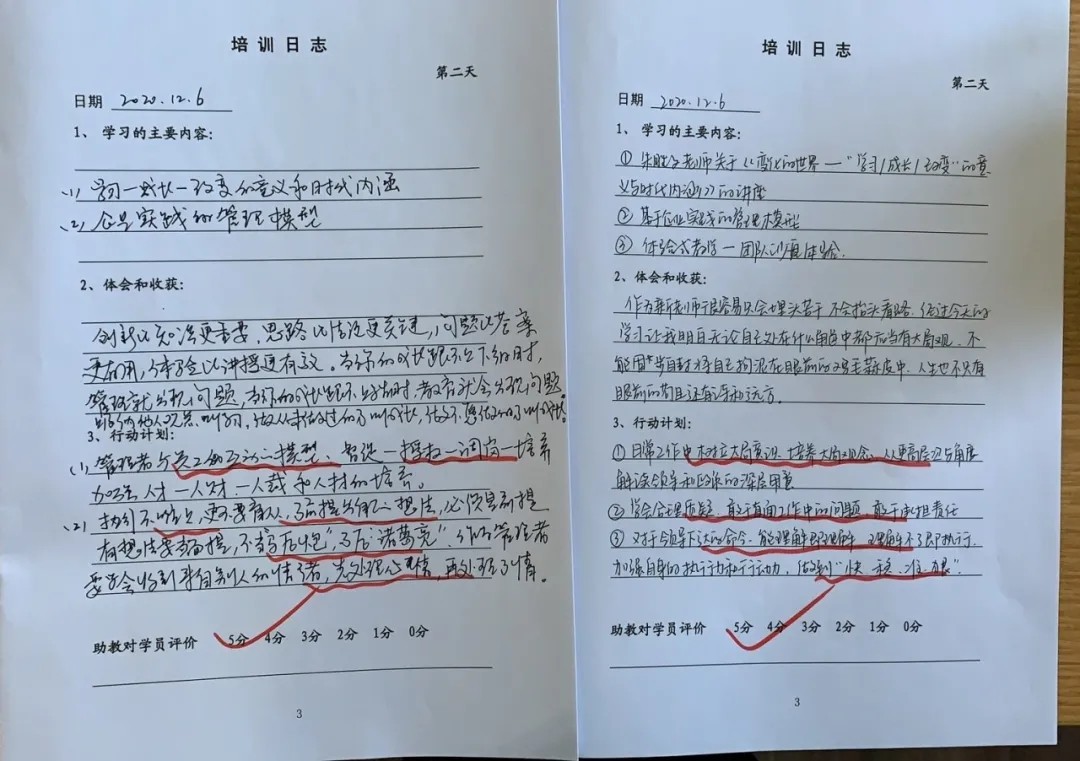 培训日志
第二天
日期 2020.12.6
1、学习的主要内容:
(1) 学习一成长一改变的意义和时代内涵
(2) 企业实践的管理模型
2、体会和收获:
创新比知法更重要,思路比方法更关键,问题比答案
更有用,体验比讲授更有效。当你的成长跟不上下级时,
管理就出现问题,当你的成长跟不上好时,教育就会出现问题。
叫学习,做从来没做过的事叫成长,做不愿做的事叫改变。
3、行动计划:
(1) 管理者 模型、 一授权一调岗一培养
加强人才一人财一人裁和人材的培养。
(2) 指引不 ,更不要 ,而提出自己想法,必须是前提
有想法要当面提,不当“后炮”,“诸葛亮”。作为管理者
要学会收到来自别人的情绪,先处理心情,再处理事情。
助教对学员评价 5分 4分 3分 2分 1分 0分
3
培训日志
第二天
日期 2020.12.6
1、学习的主要内容:
① 朱 老师关于《变化的世界—“学习/成长/改变”的意
义与时代内涵》的讲座
② 基于企业实践的管理模型
③ 体验式教学—团队沙雕体验
2、体会和收获:
作为新老师很容易只会埋头苦干 不会抬头看路,经过今天的
学习让我明白无论自己处在什么角色中都应当有大局观,不
能固步自封将自己拘泥在眼前的鸡毛蒜皮中,人生也不只有
眼前的苟且还有诗和远方。
3、行动计划:
① 日常工作中树立大局意识,培养大局观念,从更高层次与角度
解读领导和政策的深层用意
② 学会合理质疑,敢于直面工作中的问题 敢于承担责任
③ 对于领导下达的命令,能理解即理解,理解不了即执行,
加强自身的执行力和行动力,做到“快、稳、准、狠”。
助教对学员评价 5分 4分 3分 2分 1分 0分
3